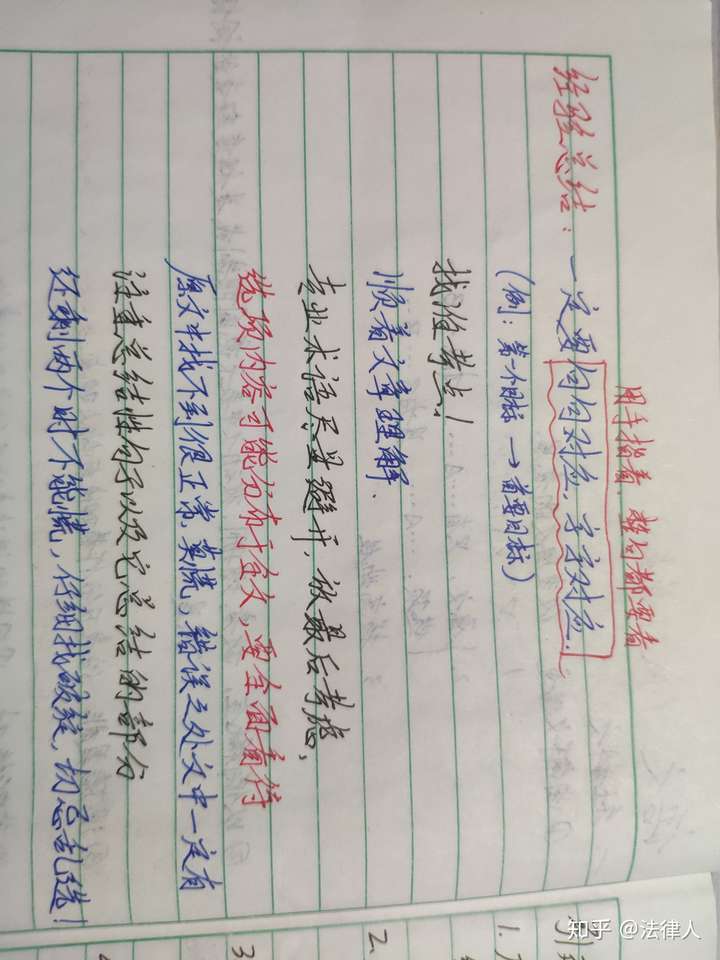 用手指着,整句都要看
经验总结:一定要句句对应,字字对应.
(例:第一个目标 → 首要目标)
找准考点!
顺着文章理解.
专业术语尽量避开,放最后考虑,
选项内容可能分布于全文,要全面看待
原文中找不到很正常,莫慌,错误之处文中一定有
注重总结性句子以及它总结的部分
还剩两个时不能慌,仔细找破绽,切忌乱选!
1.
2.
3
知乎 @法律人